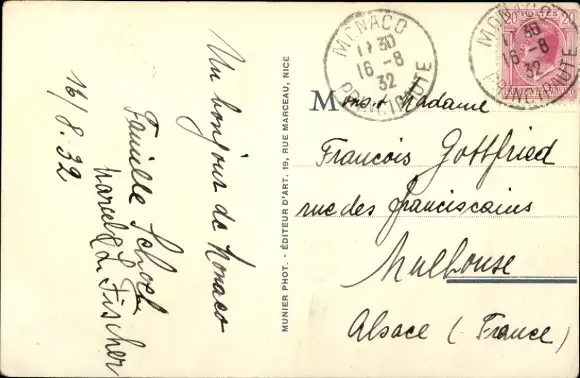 Un bonjour de Monaco
Famille Schoch
Marcel Fischer
16/8.32
MUNIER PHOT. - ÉDITEUR D'ART. 19, RUE MARCEAU, NICE
MONACO
11 30
16-8
32
PRINCIPAUTE
MONACO
30
16-8
32
PRINCIPAUTE
Mons & Madame
Francois Gottfried
rue des franciscains
Mulhouse
Alsace (France)